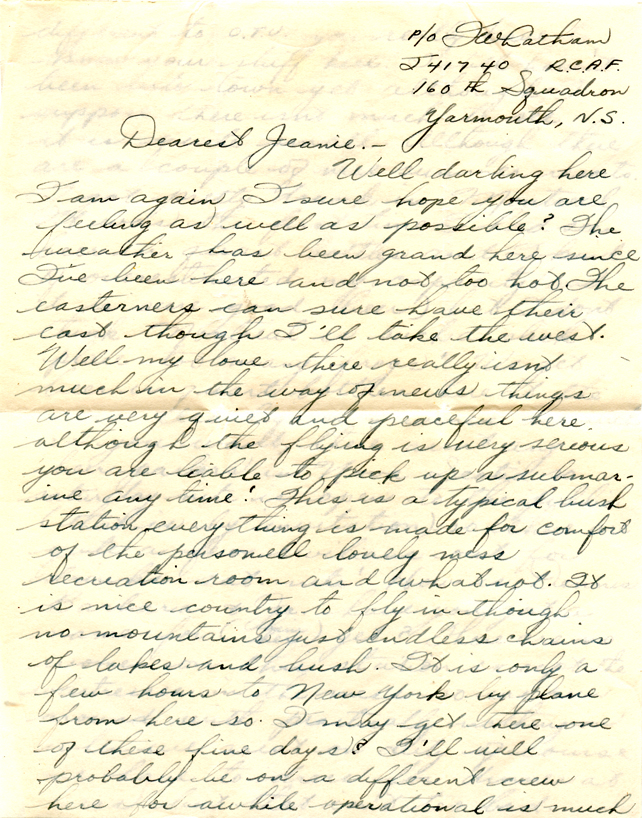 P/O I W Latham
J41740 R.C.A.F.
160th Squadron
Yarmouth, N.S.
Dearest Jeanie.-
Well darling here
I am again I sure hope you are
feeling as well as possible? The
weather has been grand here since
I've been here and not too hot. The
easterners can sure have their
east though I'll take the west.
Well my love there really isnt
much in the way of news things
are very quiet and peaceful here.
although the flying is very serious
you are liable to pick up a submar-
ine any time! This is a typical bush
station every thing is made for comfort
of the personell lovely mess
recreation room and what not. It
is nice country to fly in though
no mountains just endless chains
of lakes and bush. It is only a
few hours to New York by plane
from here so. I may get there one
of these fine days? I'll will
probably be on a different crew
here for awhile operational is much